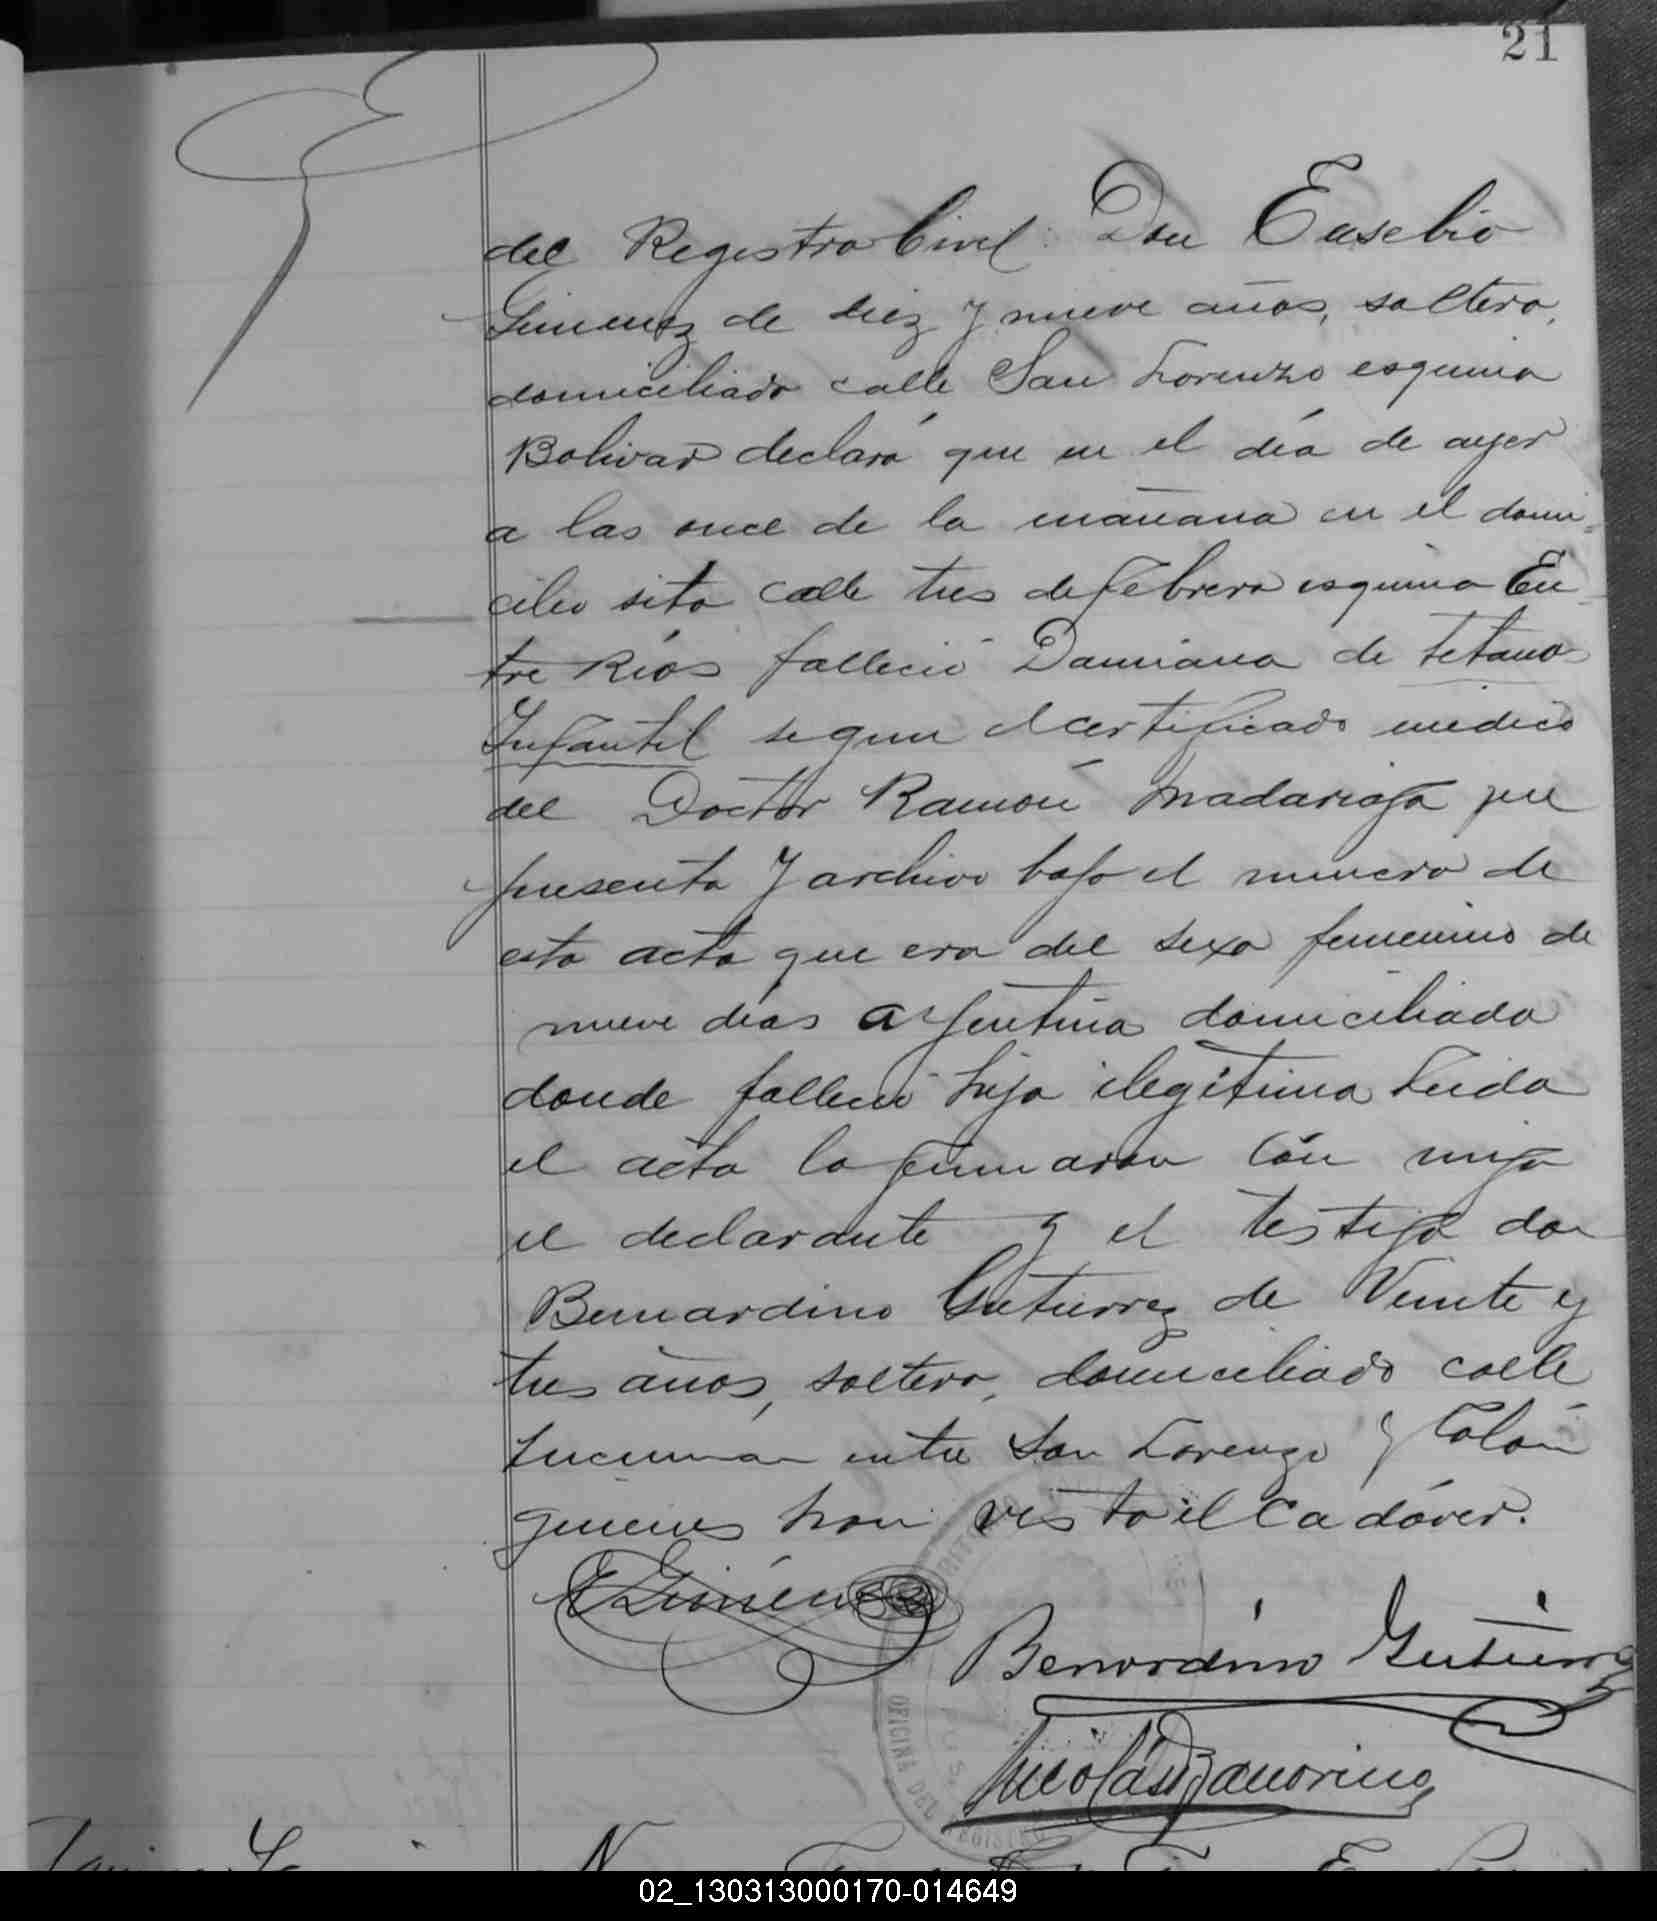 21
del Registro Civil: Don Eusebio
Gimenez de diez y nueve años, soltero,
domiciliado calle San Lorenzo esquina
Bolivar declaró que en el día de ayer
a las once de la mañana en el domi-
cilio sito calle tres de Febrero esquina En-
tre Ríos falleció Damiana de tetano
Infantil segun el certificado medico
del Doctor Ramón Madariaga que
presenta y archivo bajo el numero de
esta acta que era del sexo femenino de
nueve dias argentina domiciliada
donde falleció hija ilegítima Leida
el acta la firmaron cón migo
el declarante y el testigo don
Bernardino Gutierrez de Veinte y
tres años, soltero, domiciliado calle
Tucuman entre San Lorenzo y Colón
quienes han visto el cadáver.
E Giménez
Bernardino Gutierrez
Nicolás
OFICINA DEL REGISTRO
02_130313000170-014649